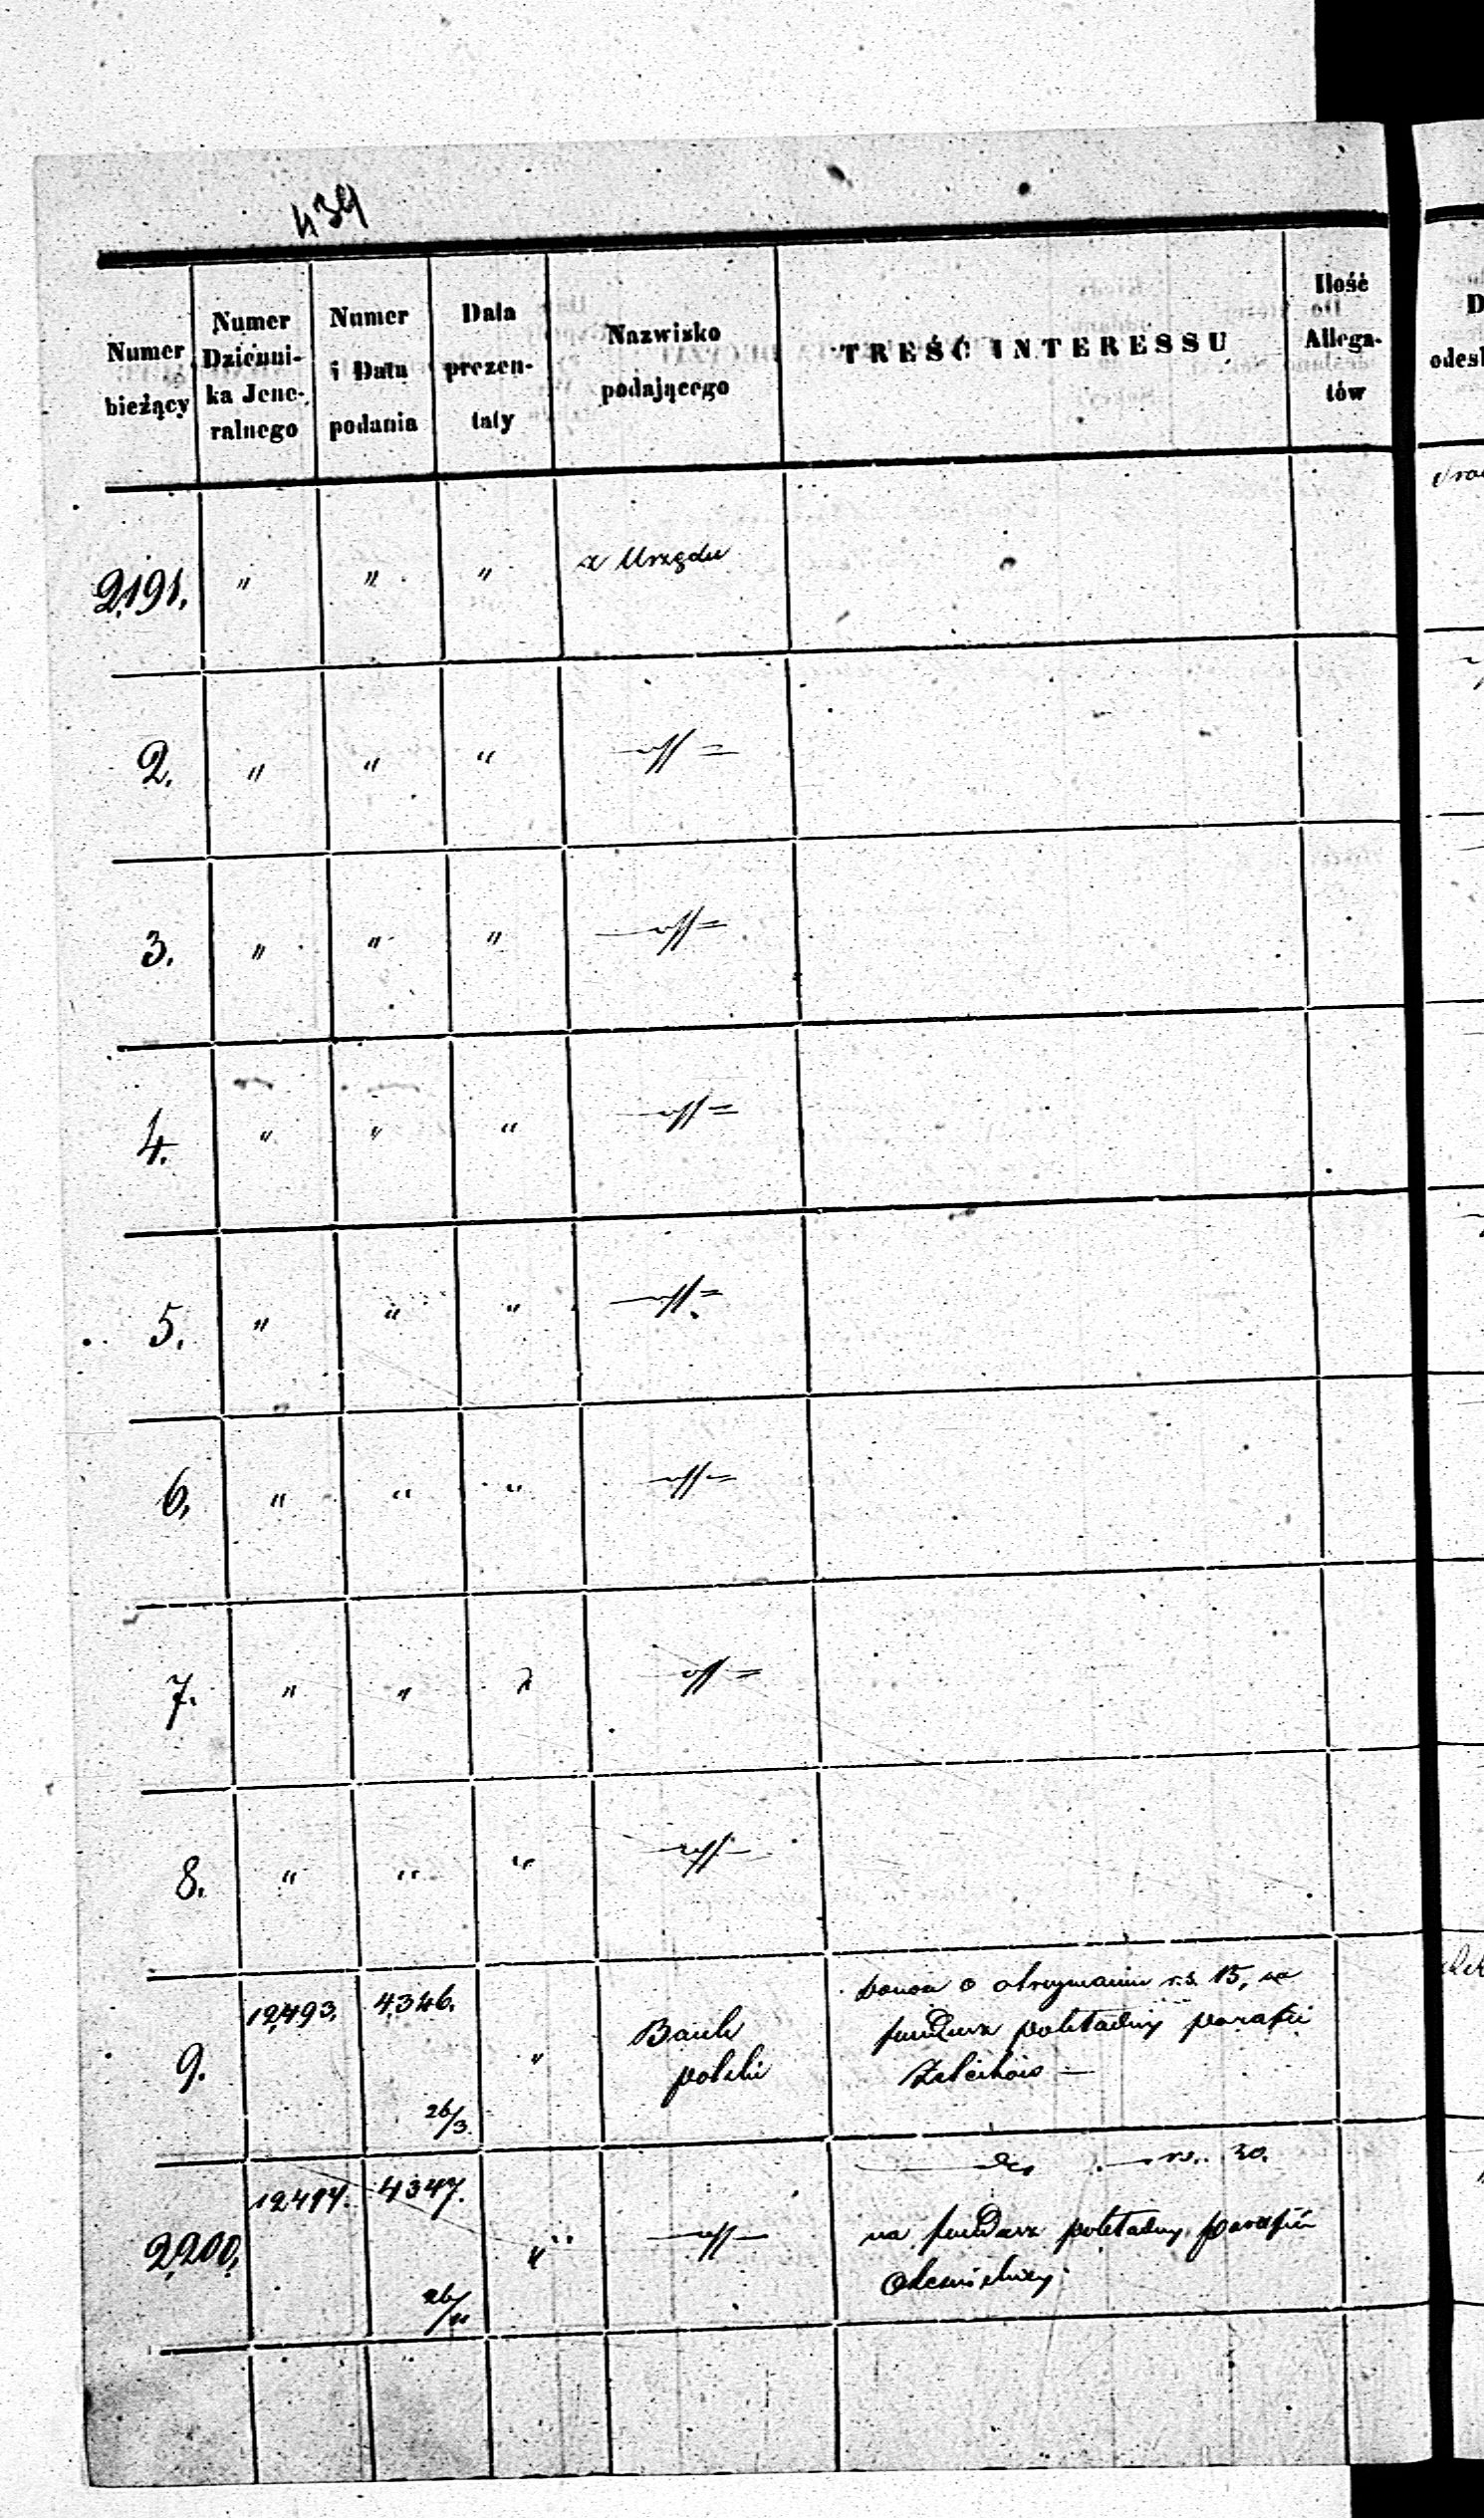 439
Numer bieżący
Numer Dzienni- ka Jene- ralnego
Numer i Data podania
Data prezen- taty
Nazwisko podającego
TREŚĆ INTERESSU
Ilość Allega- tów
2191. " " " z Urzędu
2. " " "
3. " " "
4. " " "
5. " " "
6. " " "
7. " " "
8. " " "
9. 12493. 4346. 26/3 " Bank polski
donosi o otrzymaniu r.s. 15, na
fundusz pokładny parafii
Żelechów —
2200. 4347. "
rs. 30.
na fundusz pokładny parafii